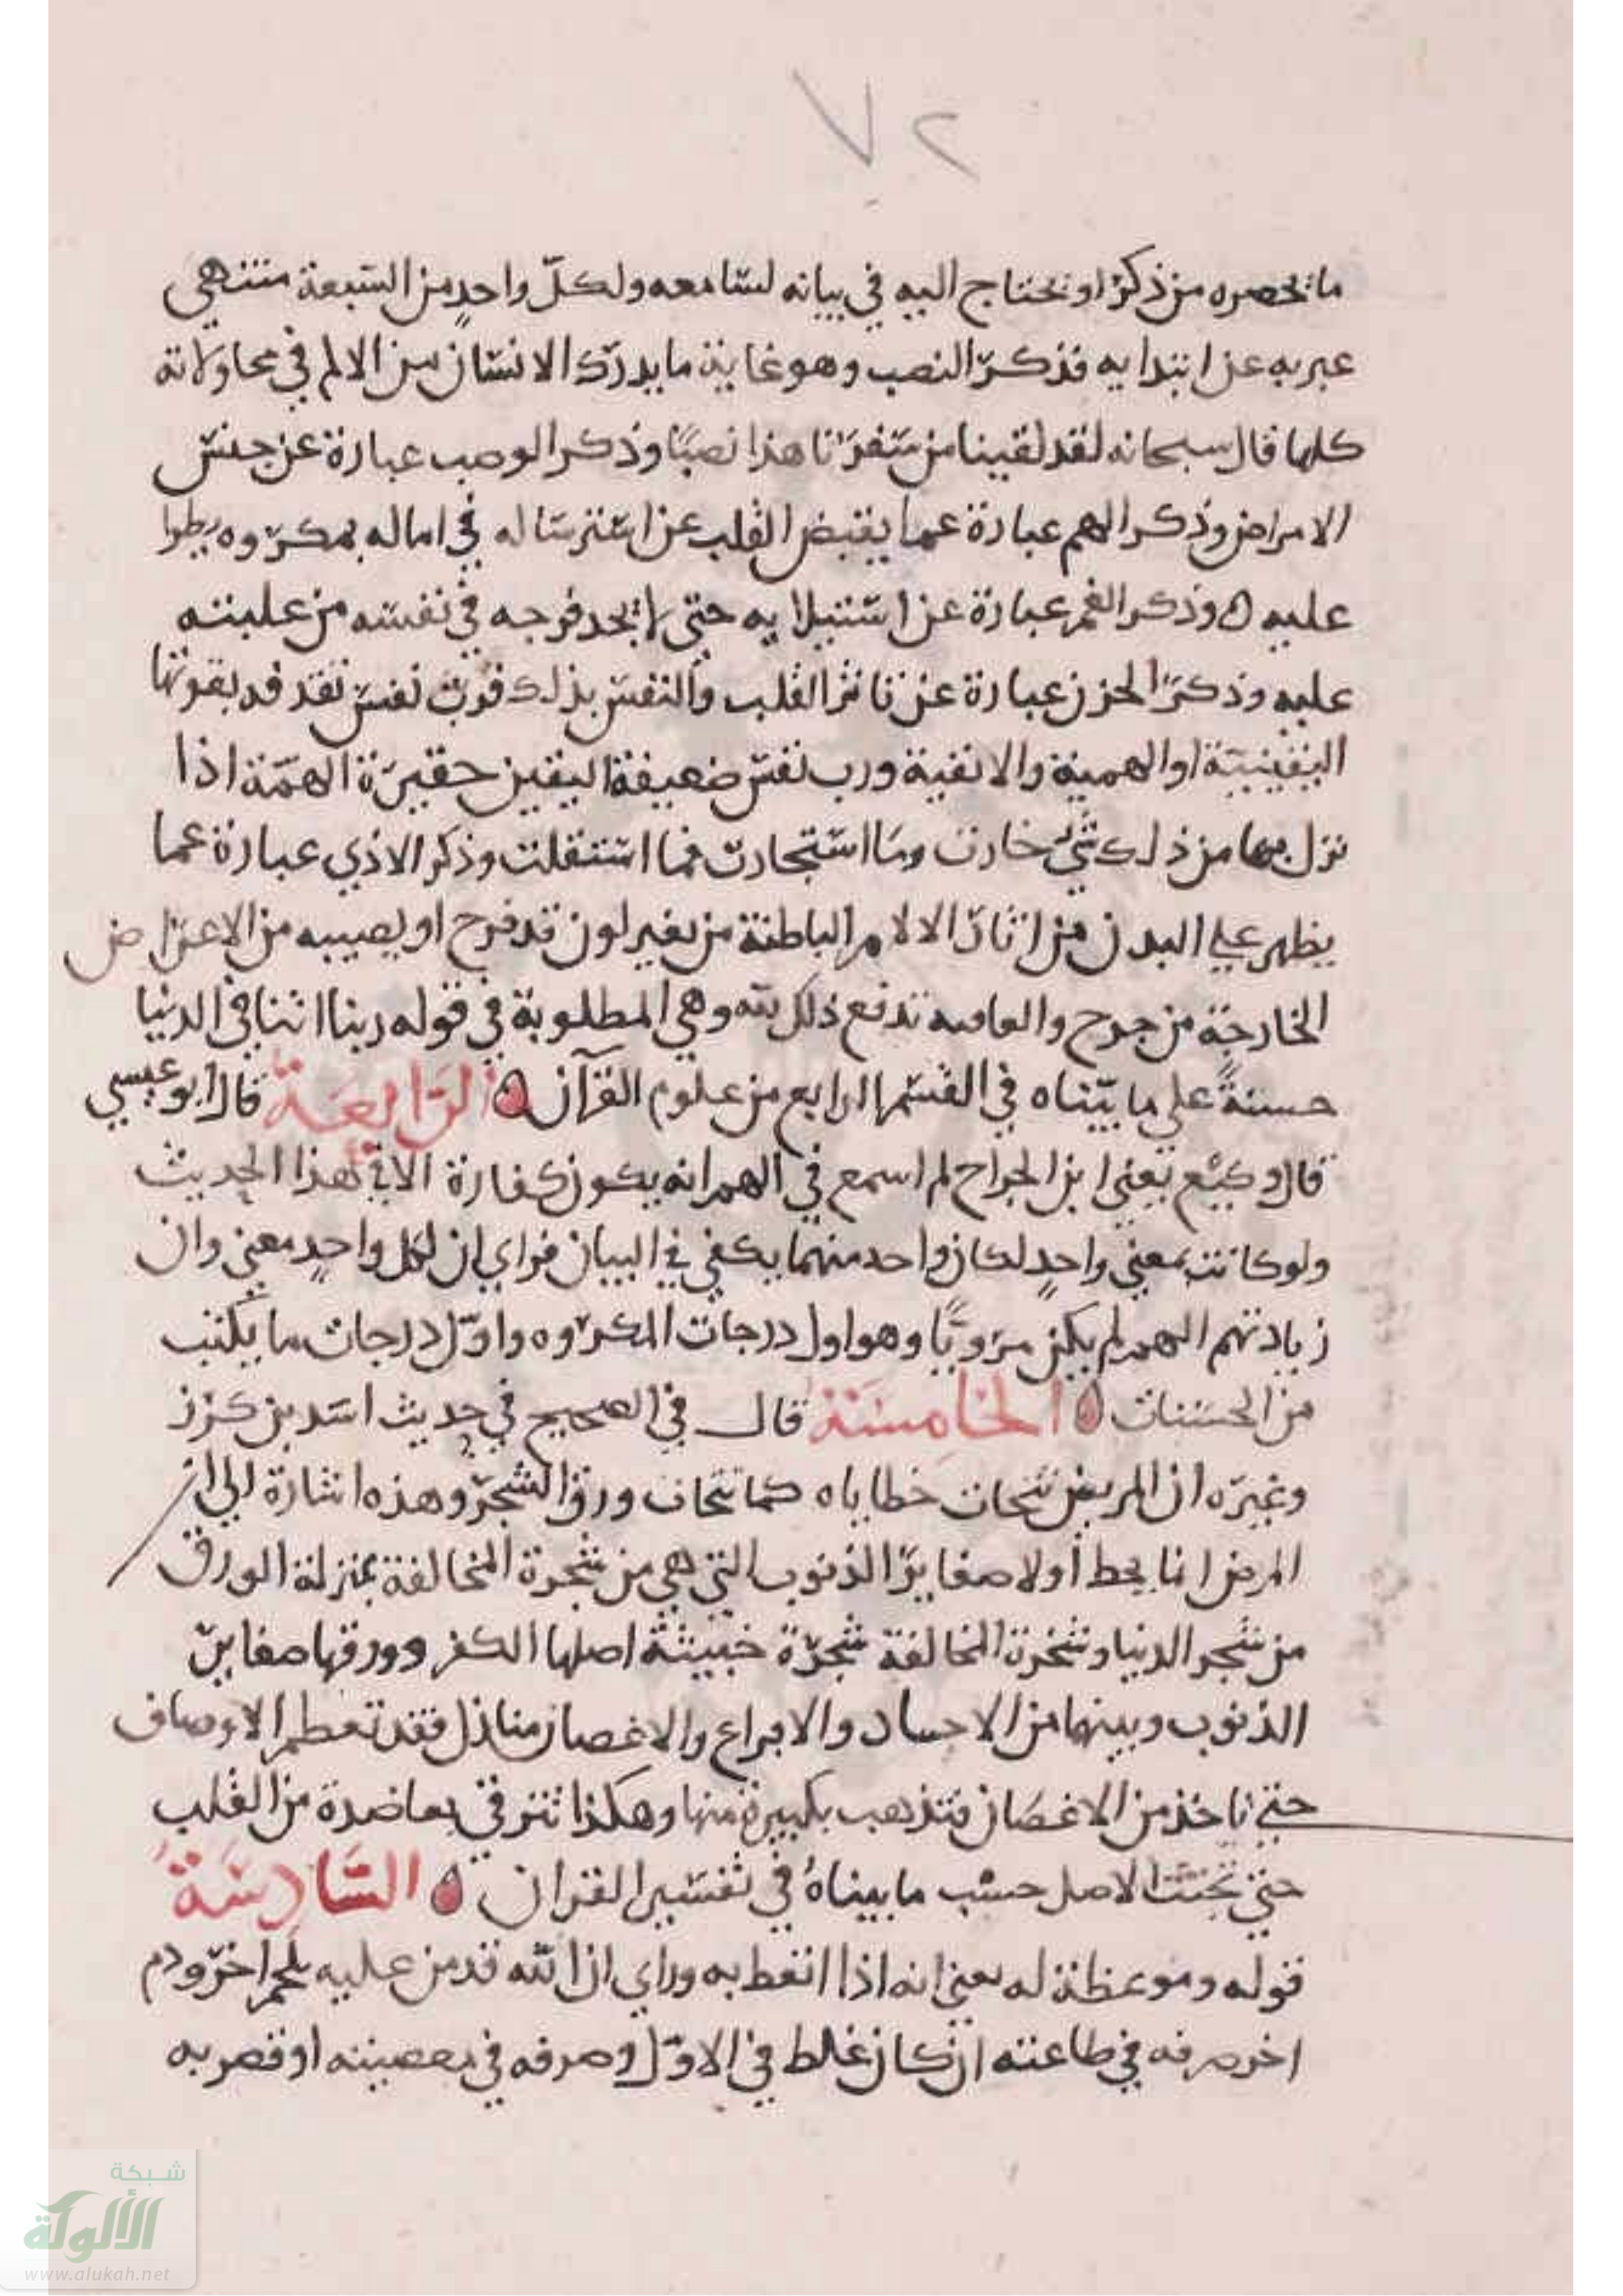 ٧٢
ما يحصره من ذكر او يحتاج اليه في بيانه لسامعه ولكل واحدٍ من السبعة منتهى
عبر به عن ابتدايه فذكر النصب وهو غاية ما يدرك الانسان من الالم في محاولاته
كلها قال سبحانه لقد لقينا من سفرنا هذا نصبًا وذكر الوصب عبارة عن جنس
الامراض وذكر الهم عبارة عما يقبض القلب عن استرساله في اماله بمكروه يطرا
عليه وذكر الغم عبارة عن استيلايه حتى لا يجد فرجه في نفسه من غلبته
عليه وذكر الحزن عبارة عن تاثر القلب والنفس بذلك فرب نفس تقد قد بقوتها
اليقينية او الهمية والانفية ورب نفس ضعيفة اليقين حقيرة الهمة اذا
نزل بها من ذلك شي خارت وما استجارت فما استقلت وذكر الاذي عبارة عما
يظهر علي البدن من اثار الالام الباطنة من تغير لون قد فرح او يصيبه من الاعراض
الخارجة من جرح والعافية تدفع ذلك كله وهي المطلوبة في قوله ربنا اتنا في الدنيا
حسنةً على ما بيّناه في القسم الرابع من علوم القرآن الرابعة قال أبو عيسي
قال وكيع يعني ابن الجراح لم اسمع في الهم انه يكون كفارة الا في هذا الحديث
ولو كانت بمعنى واحدٍ لكان واحد منهما يكفي في البيان فراي ان لكل واحدٍ معنى وان
زيادتهم الهم لم يكن مرويًا وهو اول درجات المكروه واوّل درجات ما يكتب
من الحسنات الخامسة قال في الصحيح في حديث اسد بن كرز
وغيره ان المريض تتحات خطاياه كما تتحات ورق الشجر وهذه اشارة الي ان
المرض انما يحط أولا صغاير الذنوب التي هي من شجرة المخالفة بمنزلة الورق
من شجر الدنيا وشجرة المخالفة شجرة خبيثة اصلها الكفر وورقها صغاير
الذنوب وبينهما من الاجساد والافراع والاغصان منازل فقد تعظم الاوصاف
حتي تاخذ من الاغصان فتذهب بكبيرة منها وهكذا تترقي بمعاضدة من القلب
حتي تجتث الاصل حسب ما بيناهُ في تفسير القران السادسة
قوله وموعظة له يعني انه اذا اتعظ به وراي ان الله قد من عليه بلحم اخر ودم
اخر صرفه في طاعته ان كان غلط في الاوّل وصرفه في معصيته او قصر به
شبكة
الألوكة
www.alukah.net